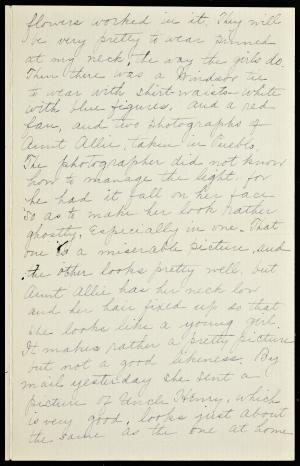 flowers worked in it. They will
be very pretty to wear pinned
at my neck, the way the girls do.
Then there was a Windsor tie
to wear with shirt-waists - white
with blue figures, and a red
fan, and two photographs of
Aunt Allie, taken in Pueblo.
The photographer did not know
how to manage the light, for
he had it fall on her face
so as to make her look rather
ghostly. Especially in one. That
one is a miserable picture, and
the other looks pretty well, but
Aunt Allie has her neck low
and her hair fixed up so that
she looks like a young girl.
It makes rather a pretty picture
but not a good likeness. By
mail yesterday she sent a
picture of Uncle Henry, which
is very good, looks just about
the same as the one at home